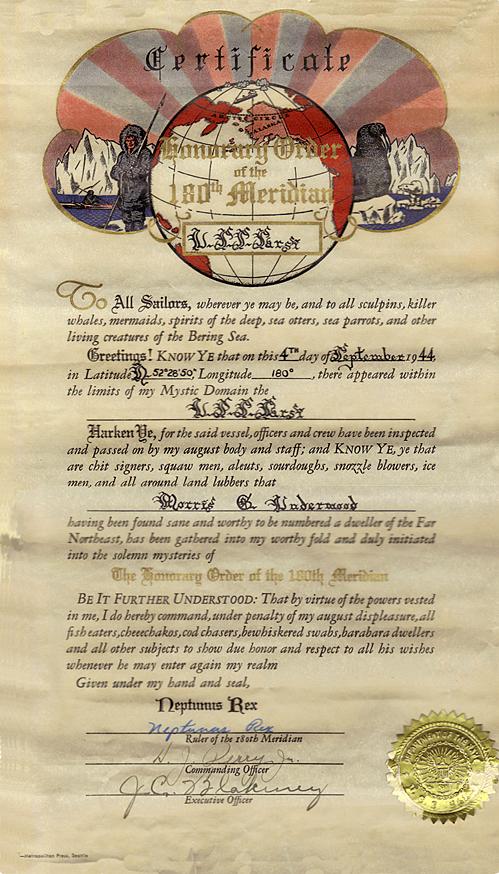 Certificate
ARCTIC CIRCLE
ALASKA
Honorary Order
of the
180th Meridian
To All Sailors, wherever ye may be, and to all sculpins, killer
whales, mermaids, spirits of the deep, sea otters, sea parrots, and other
living creatures of the Bering Sea.
Greetings! KNOW YE that on this 4TH day of September 1944,
in Latitude N 52°28'50", Longitude 180°, there appeared within
the limits of my Mystic Domain the
Harken Ye, for the said vessel, officers and crew have been inspected
and passed on by my august body and staff; and KNOW YE, ye that
are chit signers, squaw men, aleuts, sourdoughs, snozzle blowers, ice
men, and all around land lubbers that
Morris G. Underwood
having been found sane and worthy to be numbered a dweller of the Far
Northeast, has been gathered into my worthy fold and duly initiated
into the solemn mysteries of
The Honorary Order of the 180th Meridian
BE IT FURTHER UNDERSTOOD: That by virtue of the powers vested
in me, I do hereby command, under penalty of my august displeasure, all
fish eaters, cheechakos, cod chasers, bewhiskered swabs, barabara dwellers
and all other subjects to show due honor and respect to all his wishes
whenever he may enter again my realm
Given under my hand and seal,
Neptunus Rex
Neptunus Rex
Ruler of the 180th Meridian
Commanding Officer
Executive Officer
—Metropolitan Press, Seattle